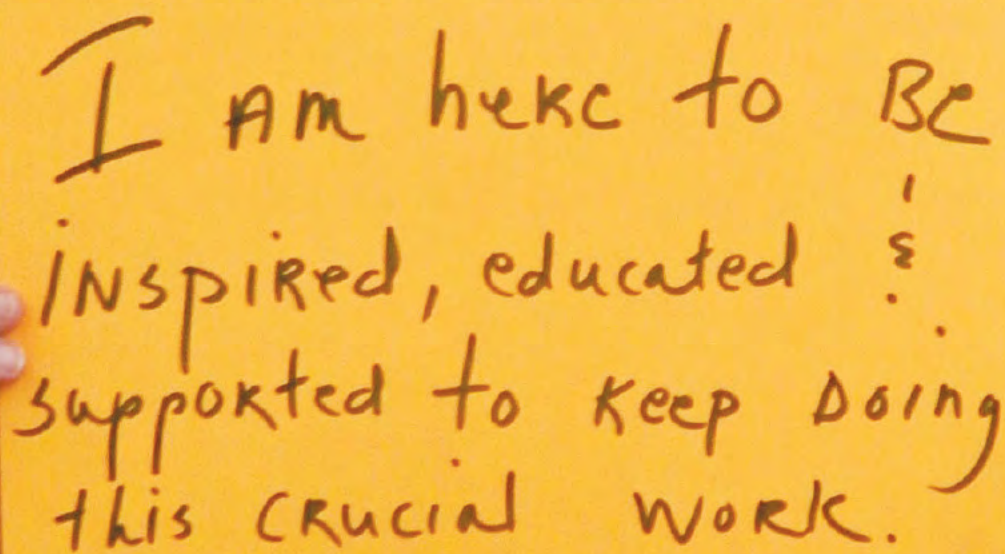 I Am here to Be
inspired, educated &
supported to keep Doing
this crucial work.